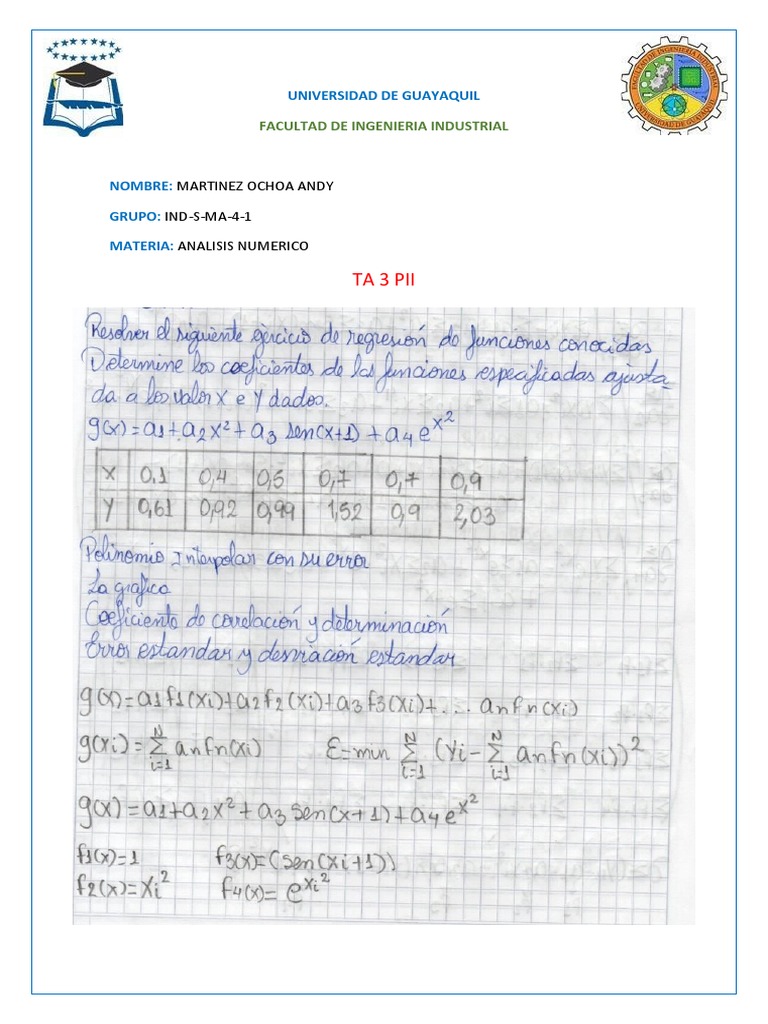 UNIVERSIDAD DE GUAYAQUIL
FACULTAD DE INGENIERIA INDUSTRIAL
FACULTAD DE INGENIERIA INDUSTRIAL
UNIVERSIDAD DE GUAYAQUIL
NOMBRE: MARTINEZ OCHOA ANDY
GRUPO: IND-S-MA-4-1
MATERIA: ANALISIS NUMERICO
TA 3 PII
Resolver el siguiente ejercicio de regresión de funciones conocidas
Determine los coeficientes de las funciones especificadas ajusta-
da a los valor X e Y dados.
g(x) = a1 + a2x² + a3 sen(x+1) + a4e^x²
X 0,1 0,4 0,5 0,7 0,7 0,9
Y 0,61 0,92 0,99 1,52 0,9 2,03
Polinomio Interpolar con su error
La grafica
Coeficiente de correlación y determinación
Error estandar y desviación estandar
g(x) = a1f1(xi)+a2f2(xi)+a3f3(xi)+... anfn(xi)
g(xi) = N∑i=1 anfn(xi) E=min N∑i=1 (Yi - N∑i=1 anfn(xi))²
g(x) = a1+a2x²+a3 sen(x+1)+a4e^x²
f1(x)=1 f3(x)=(sen(xi+1))
f2(x)=xi² f4(x)= e^xi²